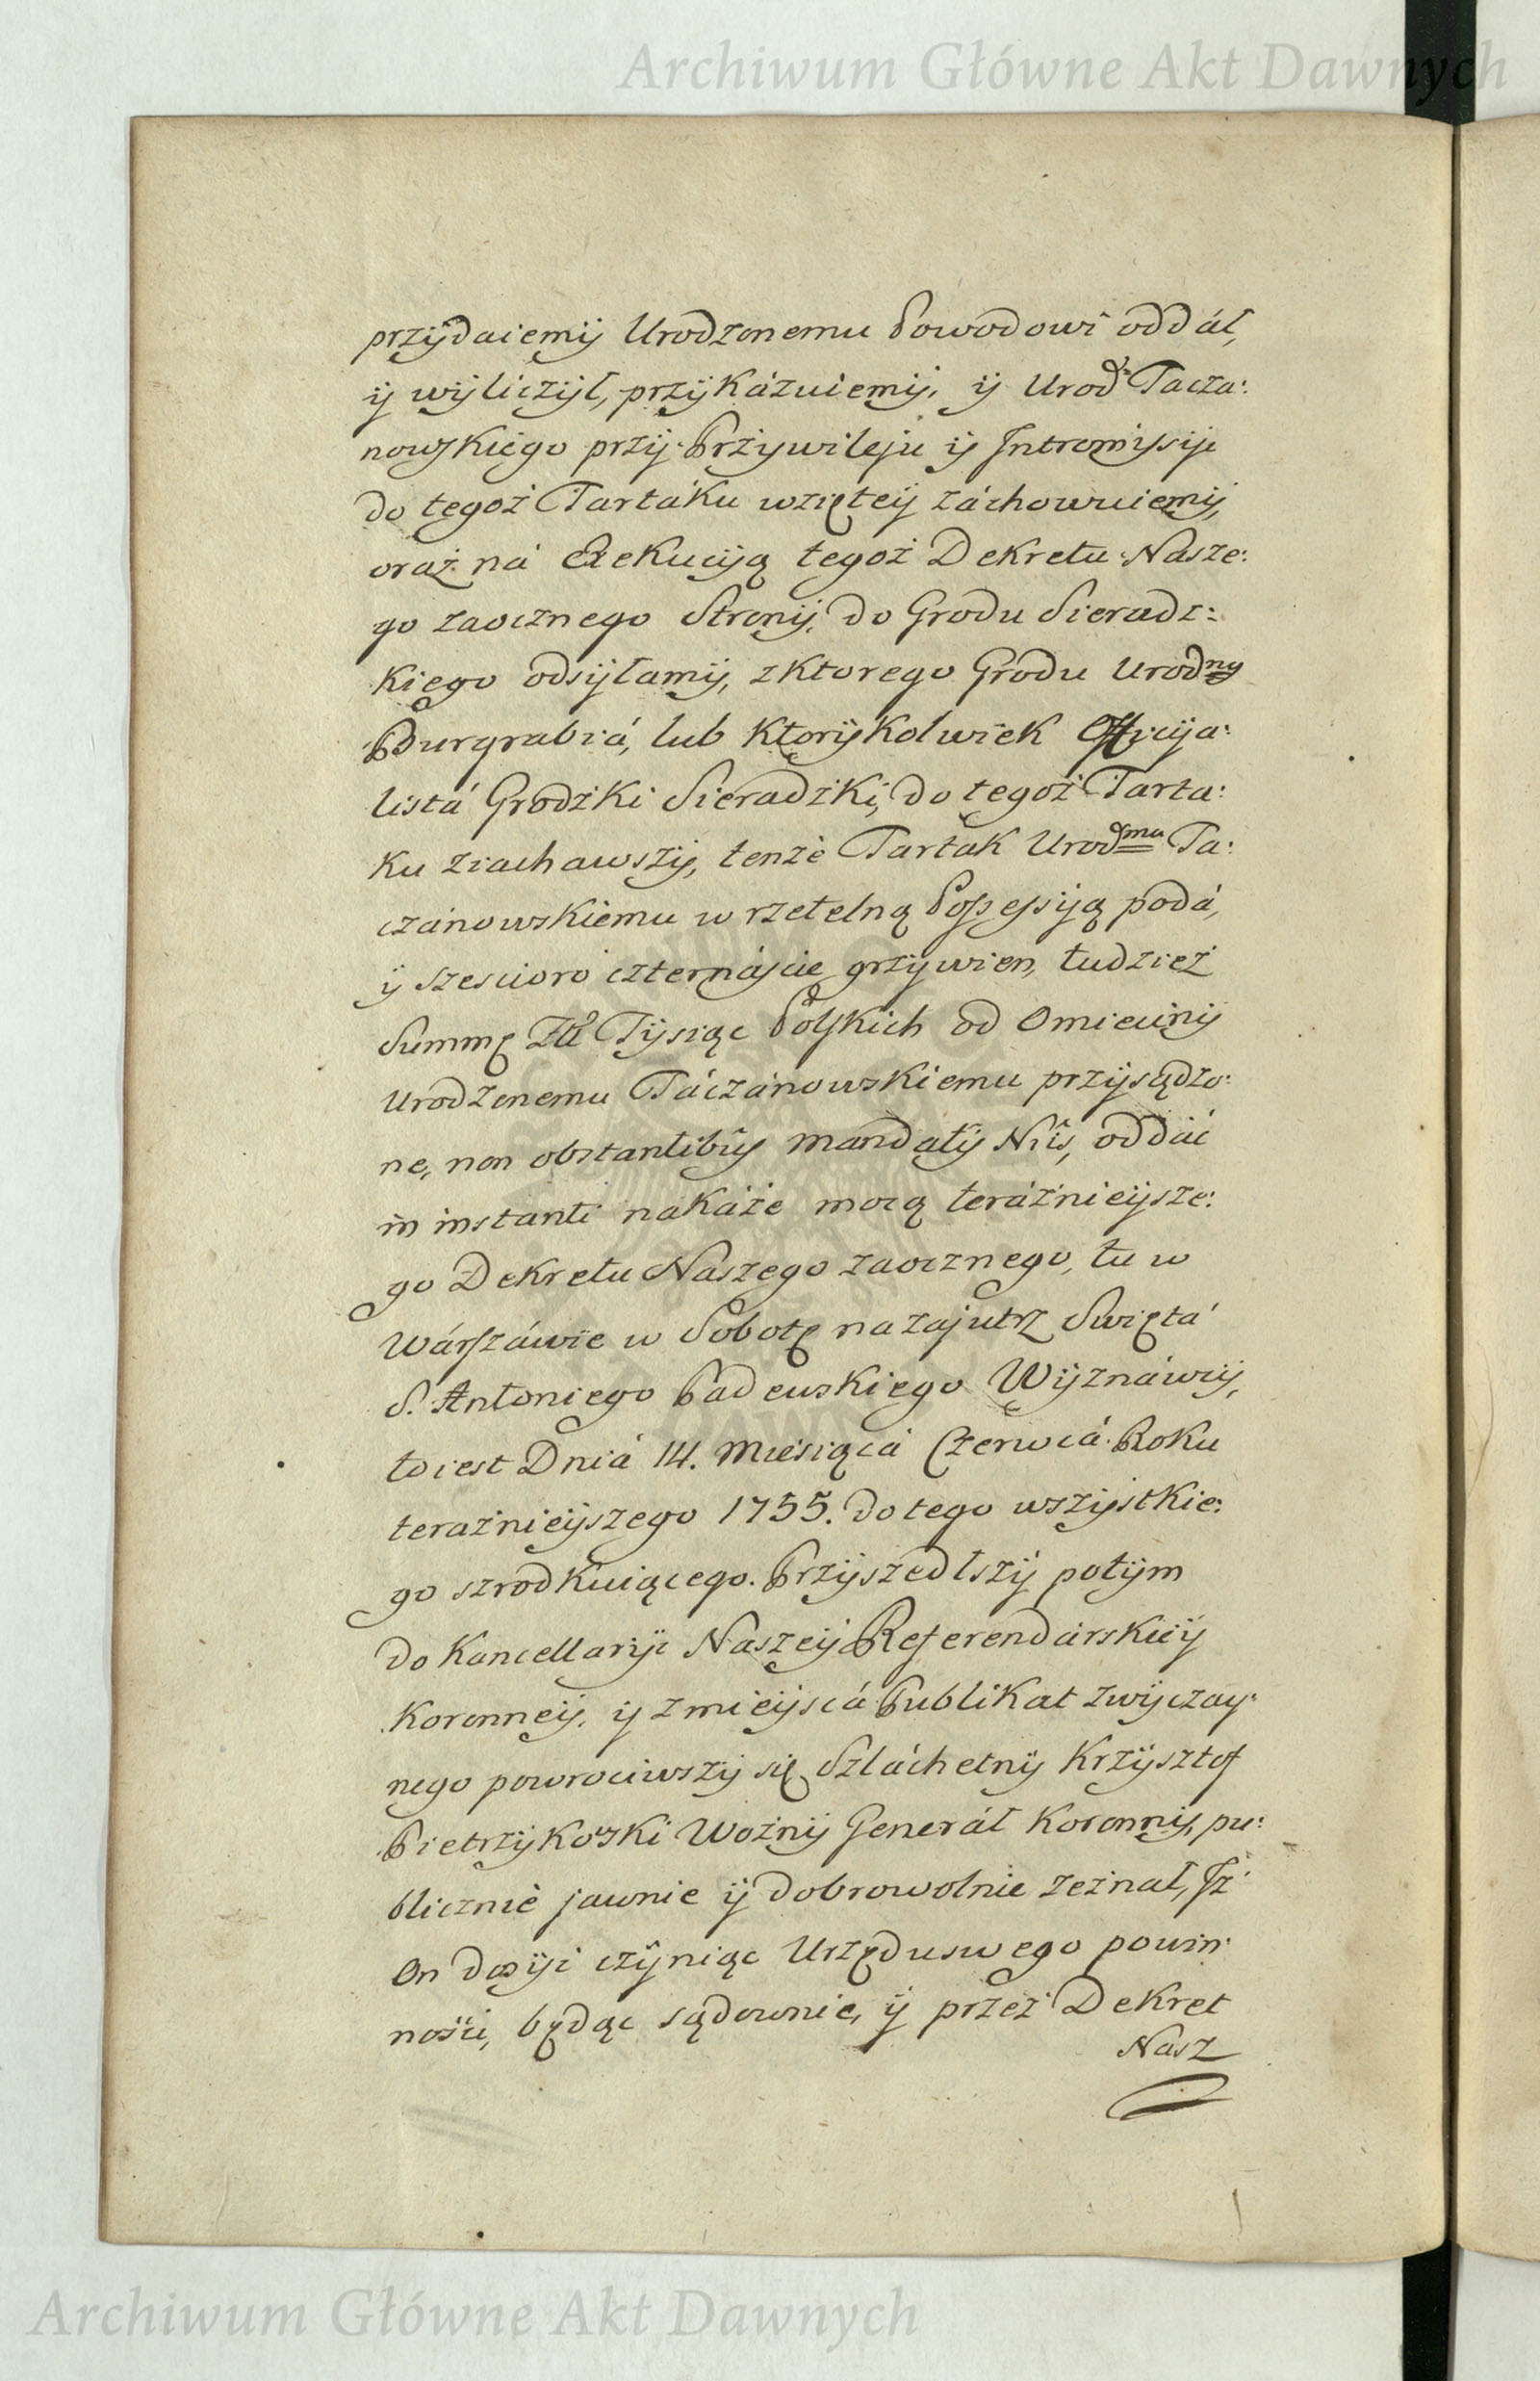 Archiwum Główne Akt Dawnych
przÿdaiemÿ Urodzonemu Powodowi oddáł,
ÿ wÿliczÿł, przÿkázuiemÿ, ÿ Urod: Tacza:
nowskiego przÿ Przÿwileju ÿ Intromissÿi
do tegoż Tartáku wzięteÿ záchowuiemÿ,
oraz ná Exekucÿą tegoż Dekretu Nasze:
go zaocznego Stronÿ, do Grodu Sieradz:
kiego odsÿłamÿ, z ktorego Grodu Urodnÿ
Burgrabiá, lub ktorÿkolwiek Officÿa:
listá Grodzki Sieradzki, do tegoż Tarta:
ku ziachawszÿ, tenże Tartak Urodmu Ta:
czánowskiemu w rzetelną Possessÿą podá,
ÿ szescioro czternáscie grzÿwien, tudzież
Summę Zł Tÿsiąc Polskich od Omiecinÿ
Urodzonemu Táczánowskiemu przÿsądzo:
ne, non obstantibus mandatis Nris, oddáć
in instanti nakáże mocą teráznieÿsze:
go Dekretu Naszego zaocznego, tu w
Wárszáwie w Sobotę nazajutrz Swiętá
S. Antoniego Padewskiego Wÿznáwcÿ,
to iest Dniá 14. Miesiącá Czerwcá Roku
teraznieÿszego 1755. do tego wszÿstkie:
go szrodkuiącego. Przÿszedłszÿ potÿm
do Kancellarÿi Naszeÿ Referendarskieÿ
Koronneÿ, ÿ z mieÿscá Publikat zwÿczaÿ:
nego powrociwszÿ się Szláchetnÿ Krzÿsztof
Pietrzÿkowski Woźnÿ Generáł Koronnÿ, pu:
blicznie jawnie ÿ dobrowolnie zeznał, Iż
On dosÿć czÿniąc Urzędu swego powin:
ności, będąc sądownie, ÿ przez Dekret
Nasz
Archiwum Główne Akt Dawnych